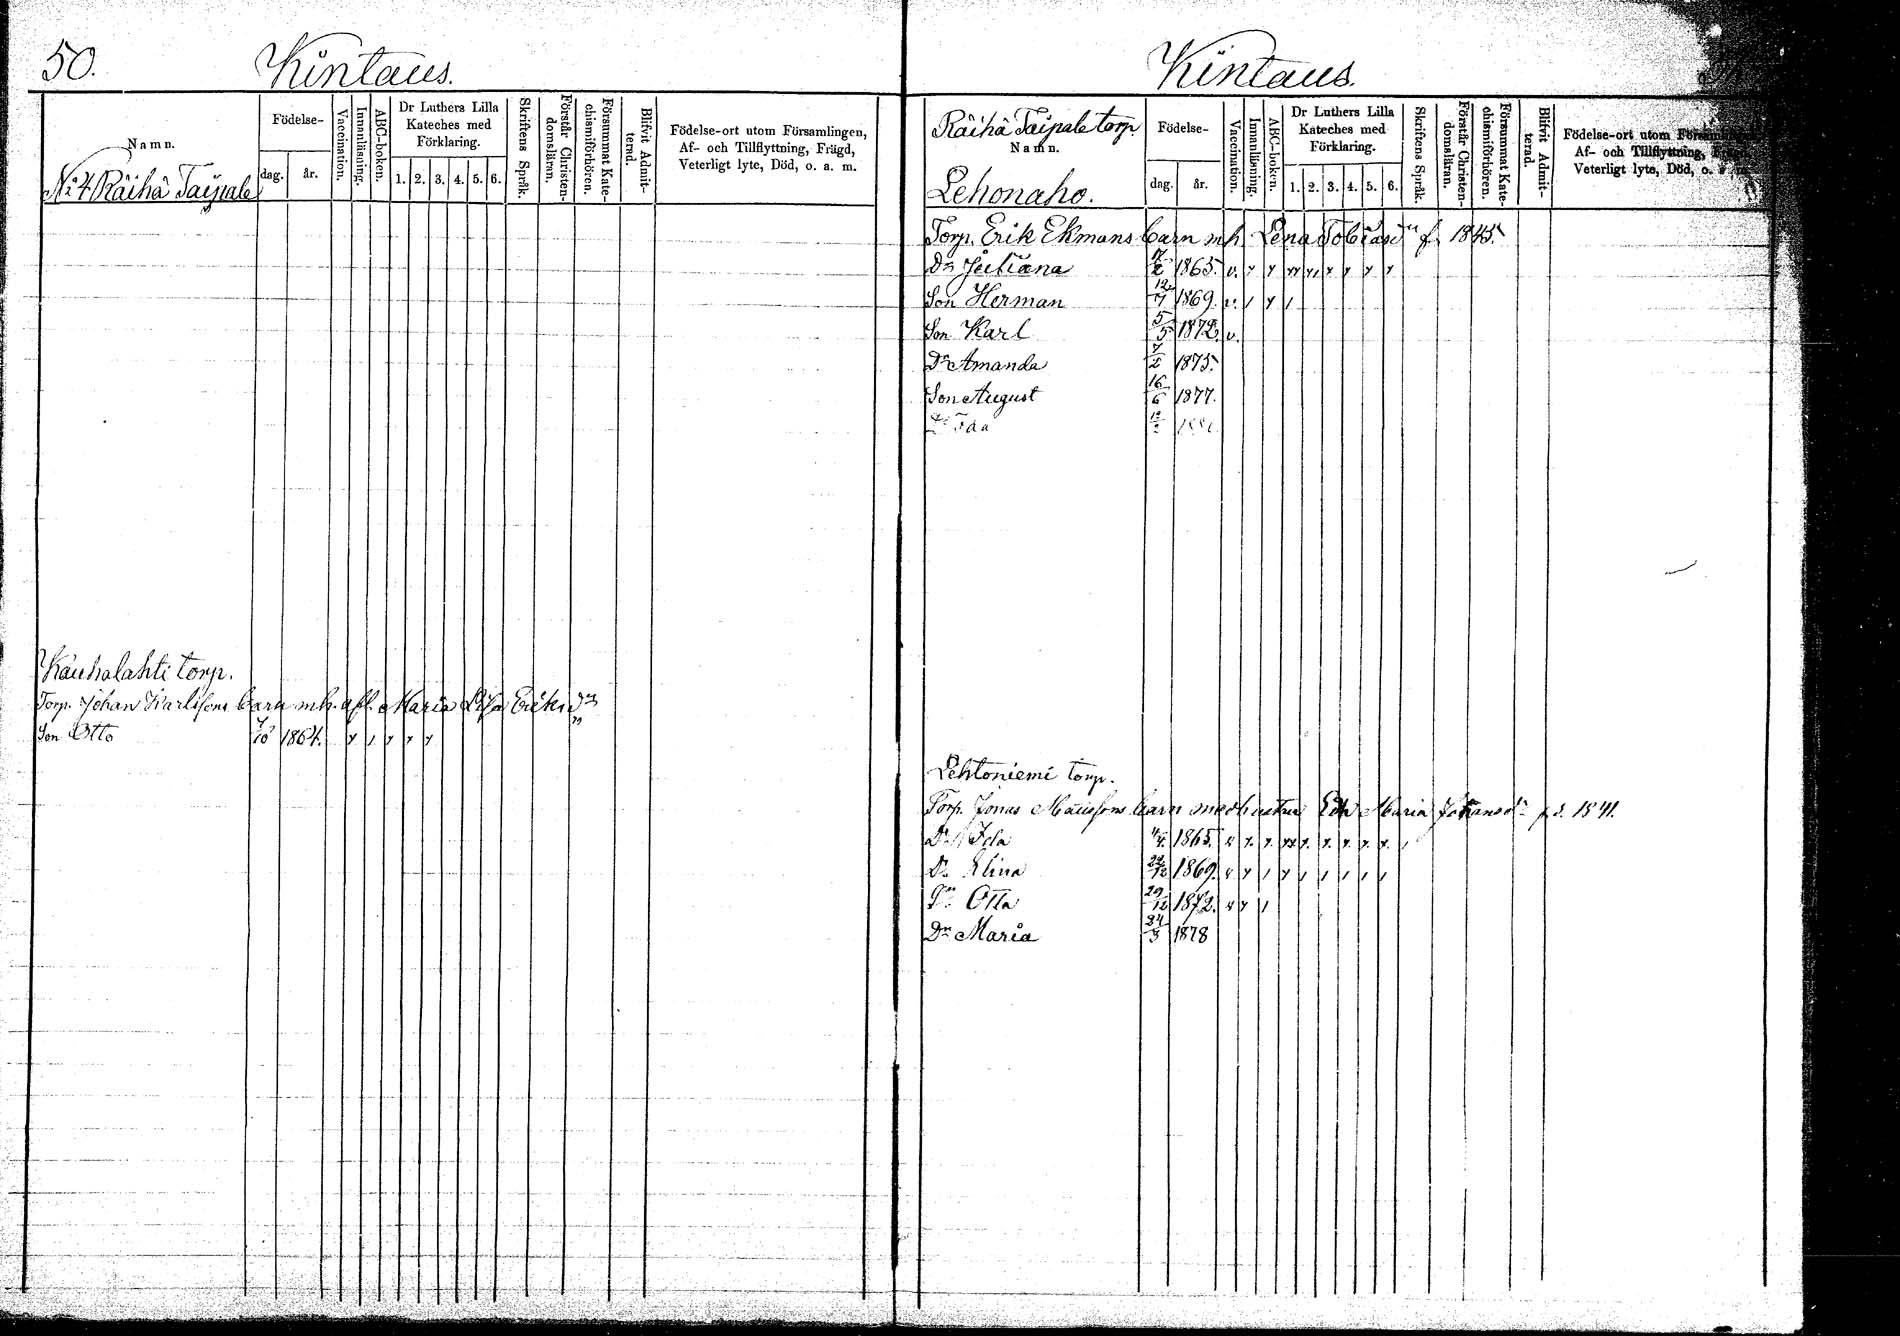 50.
Kintaus.
Namn.
Födelse-
dag.
år.
Vaccination.
Innanläsning.
ABC-boken.
Dr Luthers Lilla
Kateches med
Förklaring.
1. 2. 3. 4. 5. 6.
Skriftens Språk.
Förstår Christen-
domsläran.
Försummat Kate-
chismiförhören.
Blifvit Admit-
terad.
Födelse-ort utom Församlingen,
Af- och Tillflyttning, Frägd,
Veterligt lyte, Död, o. a. m.
No 4 Räihä Taipale
Kauhalahti torp.
Torp. Johan Karlssons barn mh. afl. Maria Lisa Eriksdr
Son Otto 1864.
Kintaus.
Räihä Taipale torp
Namn.
Lehonaho.
Födelse-
dag.
år.
Vaccination.
Innanläsning.
ABC-boken.
Dr Luthers Lilla
Kateches med
Förklaring.
1. 2. 3. 4. 5. 6.
Skriftens Språk.
Förstår Christen-
domsläran.
Försummat Kate-
chismiförhören.
Blifvit Admit-
terad.
Födelse-ort utom Församlingen,
Af- och Tillflyttning,
Veterligt lyte, Död, o. a. m.
Torp. Erik Ekmans barn mh. Lena Tobiasdr f. 1845.
Dr Juliana 1865. v.
Son Herman 12/7 1869. v.
Son Karl 5/5 1872. v.
Dr Amanda 7/2 1875.
Son August 16/6 1877.
Dr Ida
Lehtoniemi torp.
Torp. Jonas barn med hustru Maria Johansdr f. 1841.
Dr Ida 1865.
Dr Elina 22/12 1869.
Otto 29/12 1872.
Dr Maria 24/3 1878